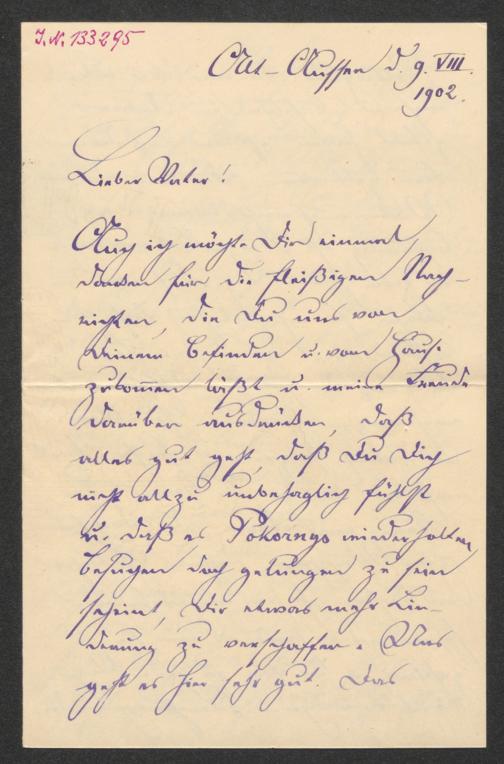 J.N. 133295
Alt-Aussee d. 9. VIII.
1902.
Lieber Vater!
Auch ich möchte Dir einmal
danken für die fleißigen Nach-
richten, die Du uns von
Deinem Befinden u. vom Hause
zukommen läßt u. meine Freude
darüber ausdrücken, daß
alles gut geht, daß Du Dich
nicht allzu unbehaglich fühlst
u. daß es Pokornys wiederholten
Besuchen doch gelungen zu sein
scheint, Dir etwas mehr Lin-
derung zu verschaffen. Uns
geht es hier sehr gut. Das